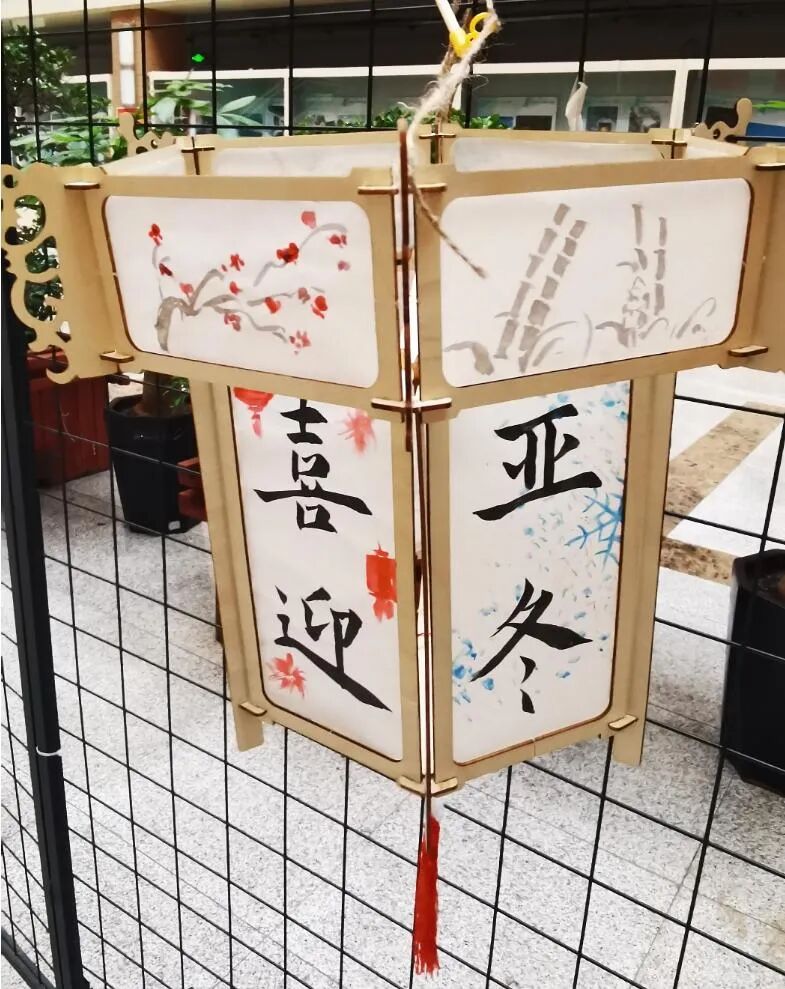 喜迎
亚冬